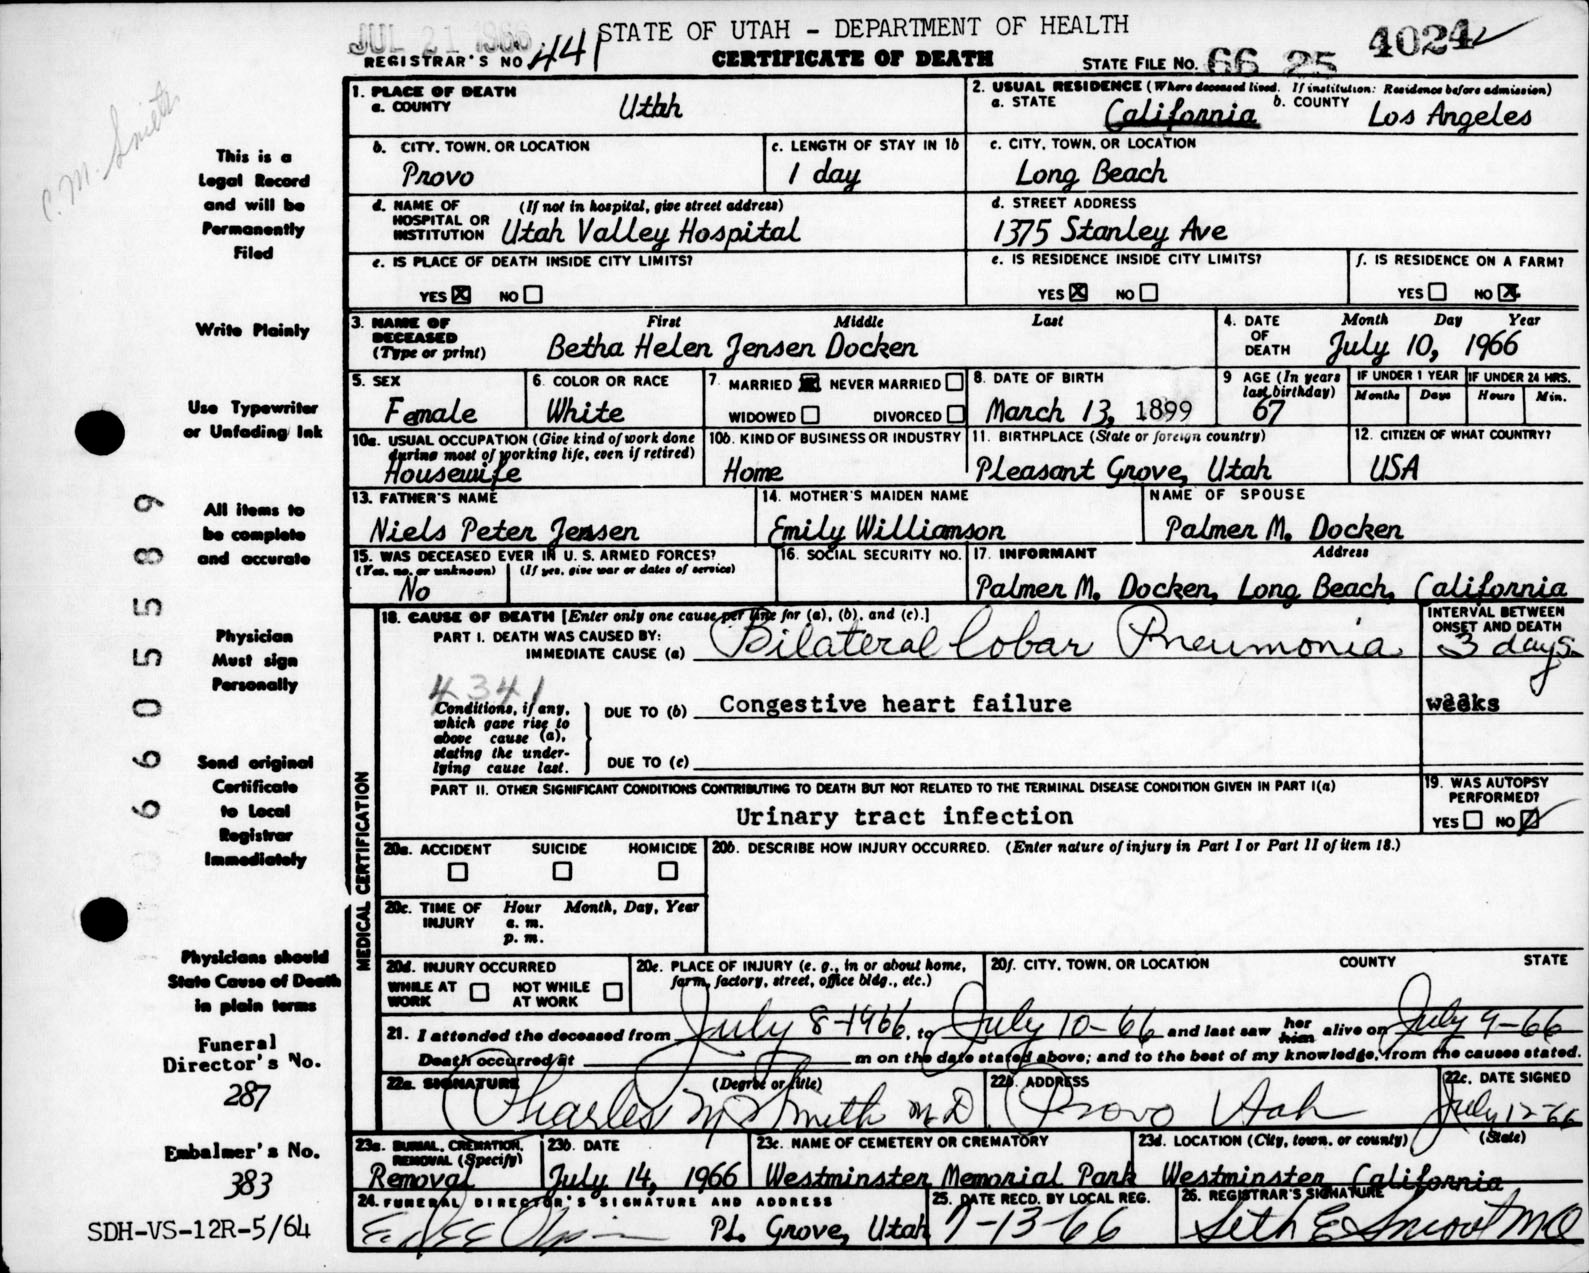 JUL 21 1966
STATE OF UTAH - DEPARTMENT OF HEALTH
4024
REGISTRAR'S NO 441
CERTIFICATE OF DEATH
STATE FILE NO. 66 25
C. M. Smith
This is a
Legal Record
and will be
Permanently
Filed
Write Plainly
Use Typewriter
or Unfading Ink
All items to
be complete
and accurate
Physician
Must sign
Personally
Send original
Certificate
to Local
Registrar
Immediately
Physicians should
State Cause of Death
in plain terms
Funeral
Director's No.
287
Embalmer's No.
383
SDH-VS-12R-5/64
66055589
1. PLACE OF DEATH
a. COUNTY Utah
2. USUAL RESIDENCE (Where deceased lived. If institution: Residence before admission)
a. STATE California b. COUNTY Los Angeles
b. CITY, TOWN, OR LOCATION
Provo
c. LENGTH OF STAY IN 1b
1 day
c. CITY, TOWN, OR LOCATION
Long Beach
d. NAME OF (If not in hospital, give street address)
HOSPITAL OR
INSTITUTION Utah Valley Hospital
d. STREET ADDRESS
1375 Stanley Ave
e. IS PLACE OF DEATH INSIDE CITY LIMITS?
YES NO
e. IS RESIDENCE INSIDE CITY LIMITS?
YES NO
f. IS RESIDENCE ON A FARM?
YES NO
3. NAME OF First Middle Last
DECEASED
(Type or print) Betha Helen Jensen Docken
4. DATE Month Day Year
OF
DEATH July 10, 1966
5. SEX
Female
6. COLOR OR RACE
White
7. MARRIED NEVER MARRIED
WIDOWED DIVORCED
8. DATE OF BIRTH
March 13, 1899
9 AGE (In years
last birthday)
67
IF UNDER 1 YEAR IF UNDER 24 HRS.
Months Days Hours Min.
10a. USUAL OCCUPATION (Give kind of work done
during most of working life, even if retired)
Housewife
10b. KIND OF BUSINESS OR INDUSTRY
Home
11. BIRTHPLACE (State or foreign country)
Pleasant Grove, Utah
12. CITIZEN OF WHAT COUNTRY?
USA
13. FATHER'S NAME
Niels Peter Jensen
14. MOTHER'S MAIDEN NAME
Emily Williamson
NAME OF SPOUSE
Palmer M. Docken
15. WAS DECEASED EVER IN U. S. ARMED FORCES?
(Yes, no, or unknown) (If yes, give war or dates of service)
No
16. SOCIAL SECURITY NO.
17. INFORMANT Address
Palmer M. Docken, Long Beach, California
MEDICAL CERTIFICATION
18. CAUSE OF DEATH [Enter only one cause per line for (a), (b), and (c).]
PART I. DEATH WAS CAUSED BY:
IMMEDIATE CAUSE (a) Bilateral lobar Pneumonia
INTERVAL BETWEEN
ONSET AND DEATH
3 days
4341
Conditions, if any,
which gave rise to
above cause (a),
stating the under-
lying cause last.
DUE TO (b) Congestive heart failure
weeks
DUE TO (c)
PART II. OTHER SIGNIFICANT CONDITIONS CONTRIBUTING TO DEATH BUT NOT RELATED TO THE TERMINAL DISEASE CONDITION GIVEN IN PART I(a)
Urinary tract infection
19. WAS AUTOPSY
PERFORMED?
YES NO
20a. ACCIDENT SUICIDE HOMICIDE
20b. DESCRIBE HOW INJURY OCCURRED. (Enter nature of injury in Part I or Part II of item 18.)
20c. TIME OF Hour Month, Day, Year
INJURY a. m.
p. m.
20d. INJURY OCCURRED
WHILE AT NOT WHILE
WORK AT WORK
20e. PLACE OF INJURY (e. g., in or about home,
farm, factory, street, office bldg., etc.)
20f. CITY, TOWN, OR LOCATION COUNTY STATE
21. I attended the deceased from July 8-1966, to July 10-66 and last saw her him alive on July 9-66
Death occurred at m on the date stated above; and to the best of my knowledge, from the causes stated.
22a. SIGNATURE (Degree or title)
Charles M Smith M.D
22b. ADDRESS
Provo Utah
22c. DATE SIGNED
July 12-66
23a. BURIAL, CREMATION,
REMOVAL (Specify)
Removal
23b. DATE
July 14, 1966
23c. NAME OF CEMETERY OR CREMATORY
Westminster Memorial Park
23d. LOCATION (City, town, or county) (State)
Westminster California
24. FUNERAL DIRECTOR'S SIGNATURE AND ADDRESS
Pl. Grove, Utah
25. DATE RECD. BY LOCAL REG.
7-13-66
26. REGISTRAR'S SIGNATURE
Seth E Smoot MD